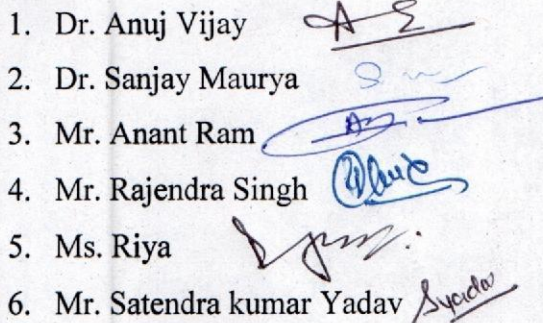 1. Dr. Anuj Vijay
2. Dr. Sanjay Maurya
3. Mr. Anant Ram
4. Mr. Rajendra Singh
5. Ms. Riya
6. Mr. Satendra kumar Yadav Syadav